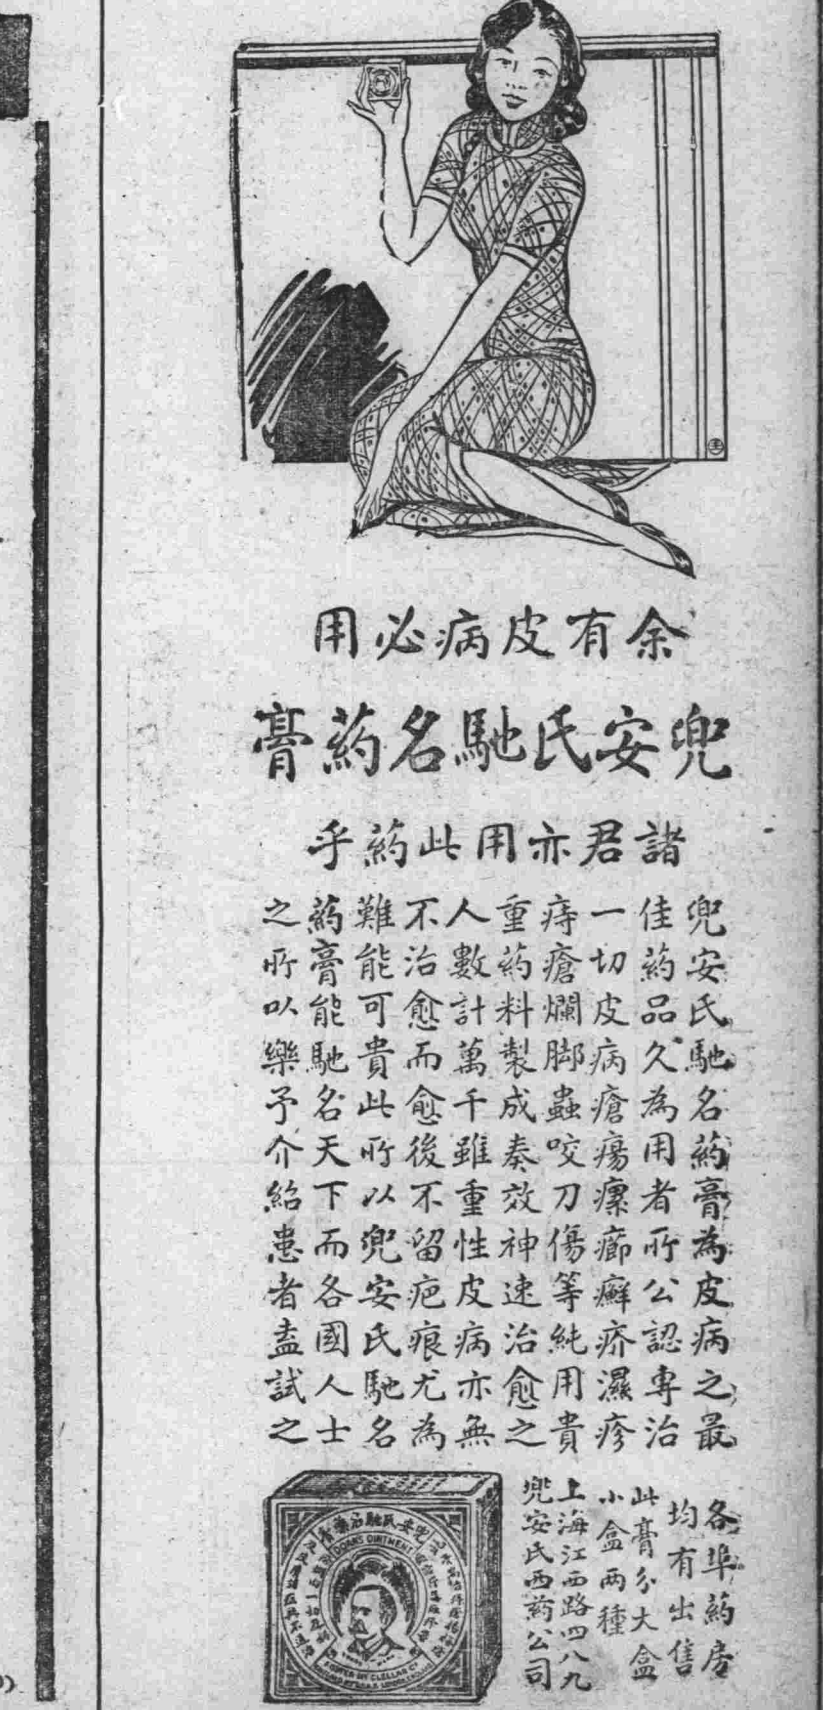 余有皮病必用
兜安氏馳名药膏
諸君亦用此药乎
兜安氏馳名药膏為皮病之最
佳药品久為用者所公認專治
一切皮病瘡瘍瘰癤癬疥濕疹
痔瘡爛脚蟲咬刀傷等純用貴
重药料製成奏效神速治愈之
人數計萬千雖重性皮病亦無
不治愈而愈後不留疤痕尤為
難能可貴此所以兜安氏馳名
药膏能馳名天下而各國人士
之所以樂予介紹患者盍試之
各埠药房
均有出售
此膏分大盒
小盒两種
上海江西路四八九
兜安氏西药公司
兜安氏馳名藥膏
DOAN'S OINTMENT